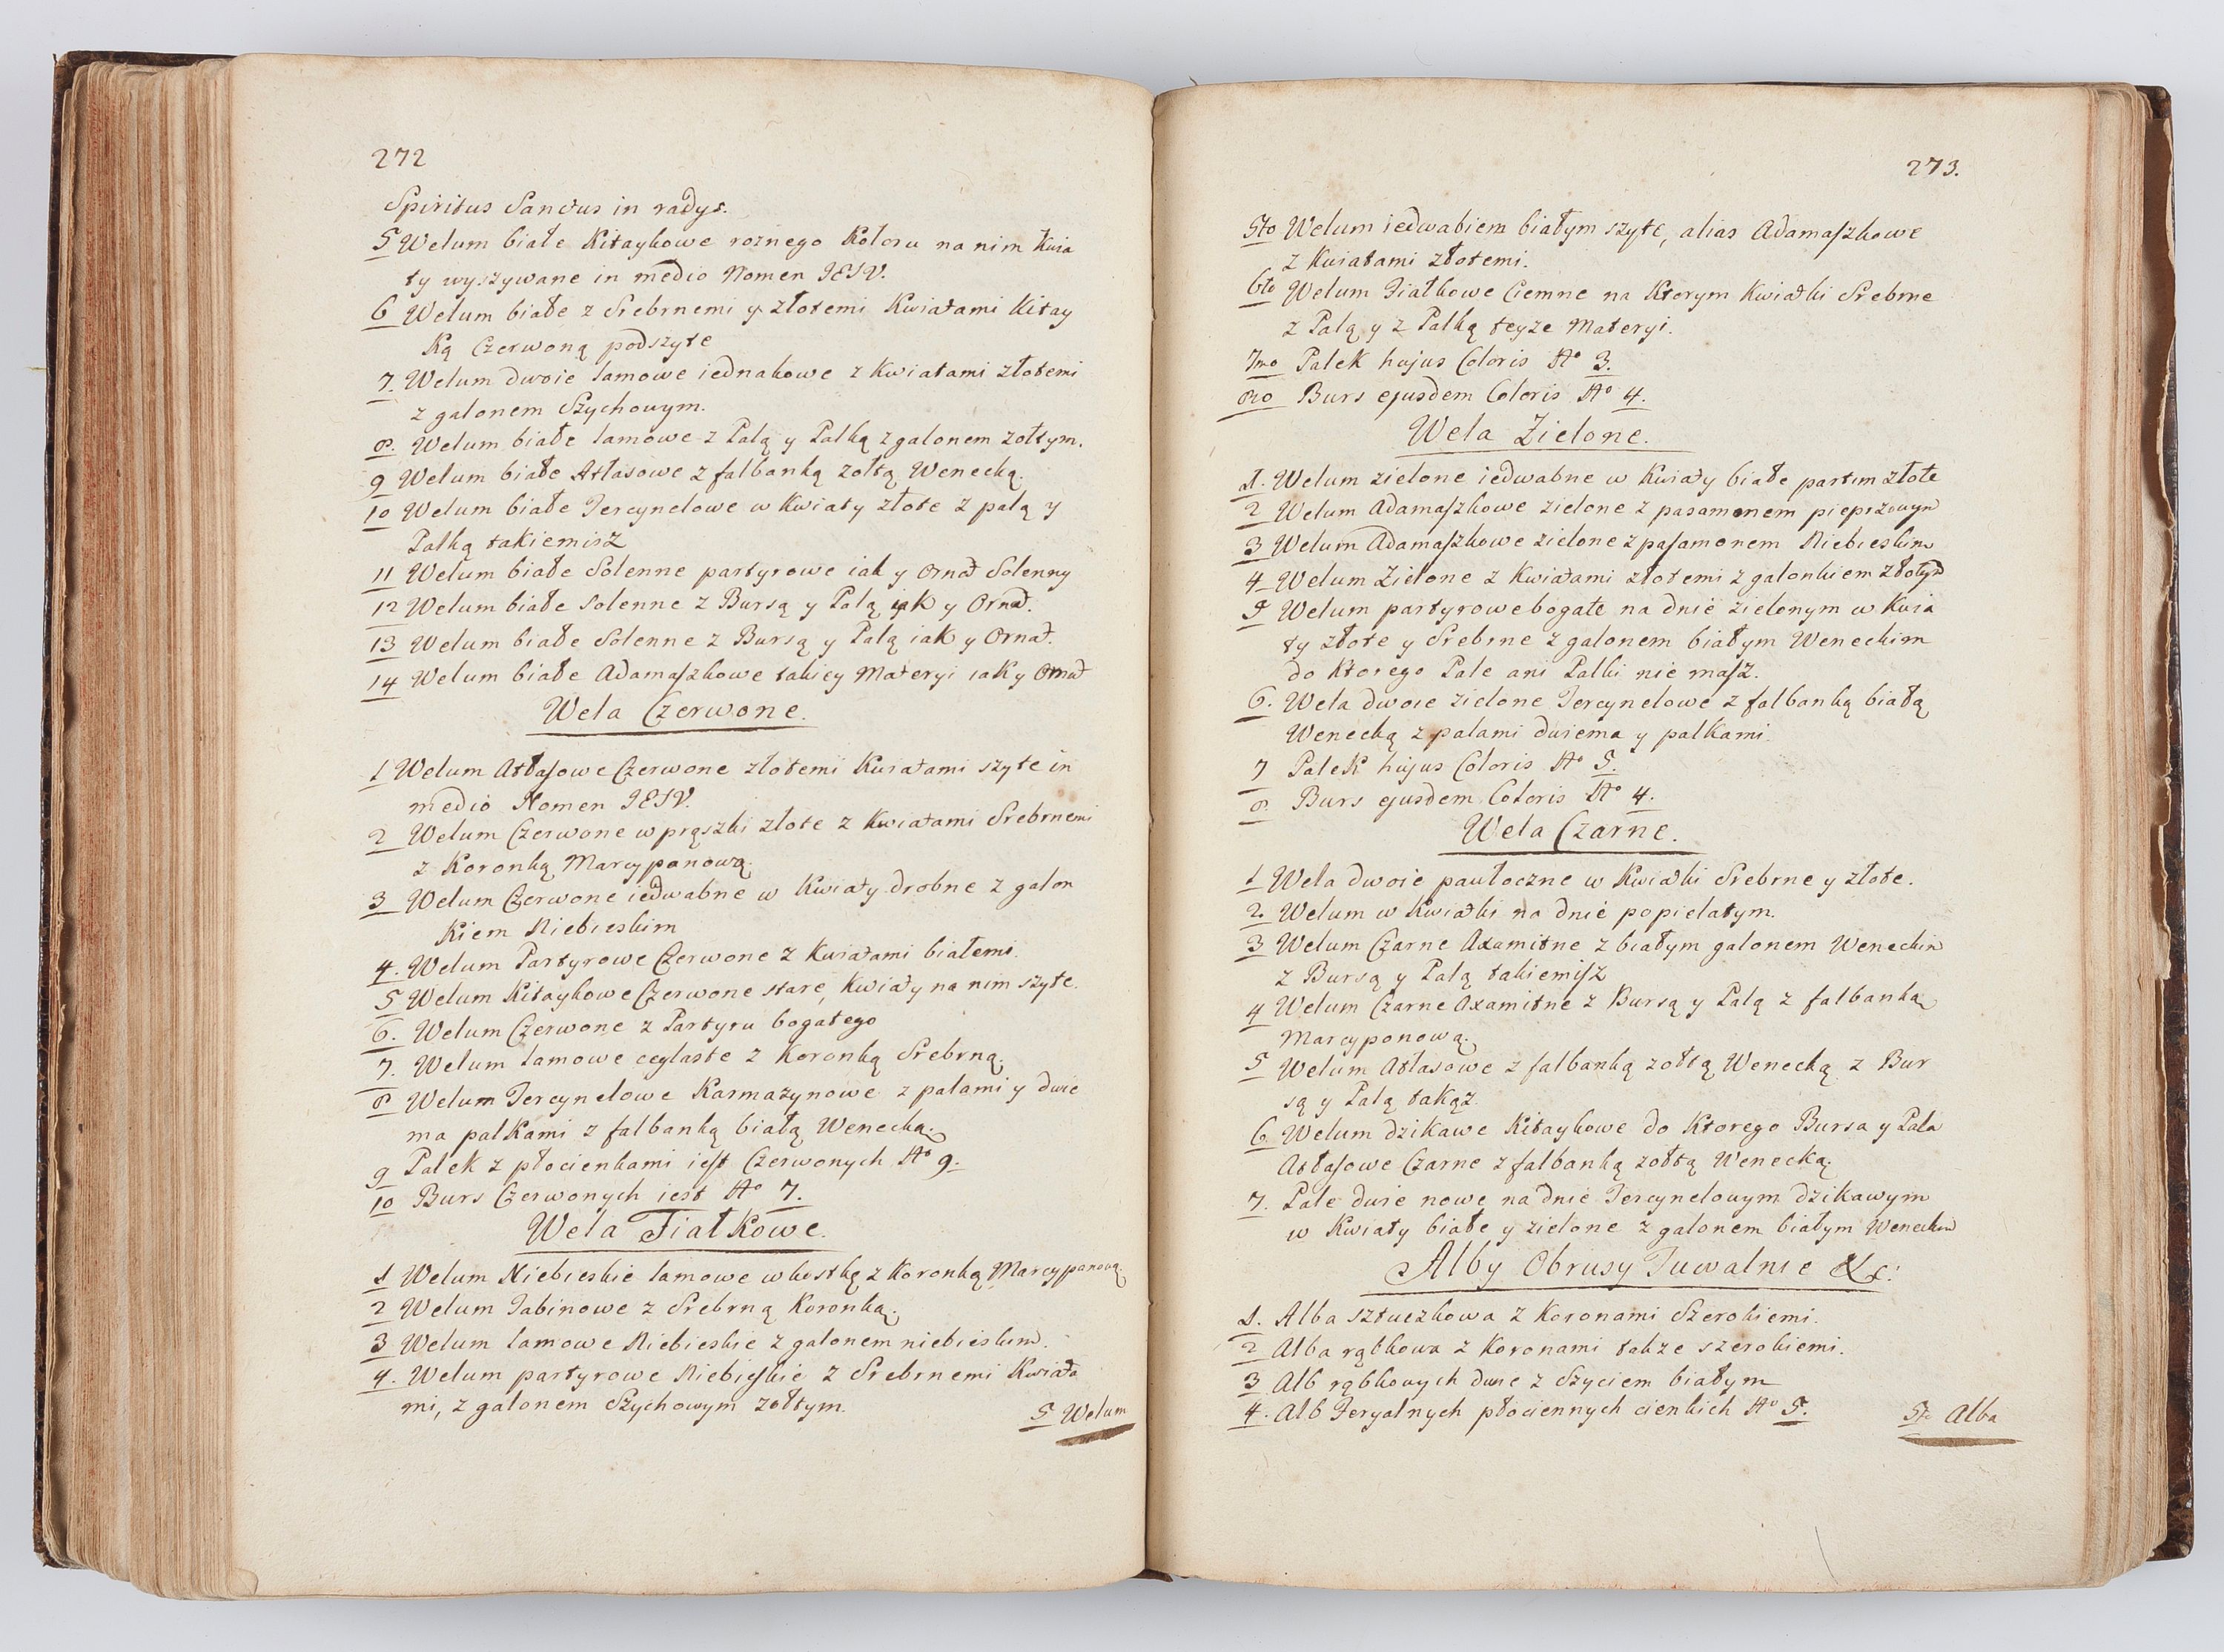 272
Spiritus Sanctus in radys.
5 Welum białe Kitaykowe roznego Koloru na nim Kwia
ty wyszywane in medio Nomen IESV.
6 Welum białe z Srebrnemi y złotemi Kwiatami Kitay
Ką Czerwoną podszyte
7. Welum dwoie lamowe iednakowe z Kwiatami złotemi
z galonem Szychowym.
8. Welum białe lamowe z Palą y Palką z galonem zołtym.
9 Welum białe Atłasowe z falbanką zołtą Wenecką.
10 Welum białe Tercynelowe w Kwiaty złote z palą y
Palką takiemisz
11 Welum białe Solenne partyrowe iak y Ornat Solenny
12 Welum białe solenne z Bursą y Palą iak y Ornat.
13 Welum białe Solenne z Bursą y Palą iak y Ornat.
14 Welum białe Adamaszkowe takiey Materyi iak y Ornat
Wela Czerwone.
1 Welum Atłasowe Czerwone złotemi Kwiatami szyte in
medio Nomen IESV.
2 Welum Czerwone w prążki złote z Kwiatami Srebrnemi
z Koronką Marcypanową.
3 Welum Czerwone iedwabne w Kwiaty drobne z galon
Kiem Niebieskim
4. Welum Partyrowe Czerwone z Kwiatami białemi.
5 Welum Kitaykowe Czerwone stare, Kwiaty na nim szyte.
6. Welum Czerwone z Partyru bogatego
7. Welum lamowe ceglaste z Koronką Srebrną.
8 Welum Tercynelowe Karmazynowe z palami y dwie
ma palkami z falbanką białą Wenecką.
9 Palek z płocienkami iest Czerwonych No 9.
10 Burs Czerwonych iest No 7.
Wela Fiałkowe.
1 Welum Niebieskie lamowe w kostkę z Koronką Marcypanową.
2 Welum Tabinowe z Srebrną Koronką.
3 Welum lamowe Niebieskie z galonem niebieskim.
4. Welum partyrowe Niebieskie z Srebrnemi Kwiata
mi, z galonem Szychowym zołtym.
5 Welum
273.
5to Welum iedwabiem białym szyte, alias Adamaszkowe
z Kwiatami złotemi.
6to Welum Fiałkowe Ciemne na Ktorym Kwiatki Srebrne
z Palą y z Palką teyze Materyi.
7mo Palek hujus Coloris No 3.
8vo Burs ejusdem Coloris No 4.
Wela Zielone.
1. Welum zielone iedwabne w Kwiaty białe partim złote
2 Welum Adamaszkowe zielone z pasamonem pieprzowym
3 Welum Adamaszkowe zielone z pasamonem Niebieskim
4 Welum Zielone z Kwiatami złotemi z galonkiem złotym
5 Welum partyrowe bogate na dnie zielonym w Kwia
ty złote y Srebrne z galonem białym Weneckim
do Ktorego Pale ani Palki nie masz.
6. Wela dwoie zielone Tercynelowe z falbanką białą
Wenecką z palami dwiema y palkami.
7 Palek hujus Coloris No 5.
8. Burs ejusdem Coloris No 4.
Wela Czarne.
1 Wela dwoie pautoczne w Kwiatki Srebrne y złote.
2. Welum w Kwiatki na dnie popielatym.
3 Welum Czarne Axamitne z białym galonem Weneckim
z Bursą y Palą takiemisz
4 Welum Czarne Axamitne z Bursą y Palą z falbanką
Marcyponową.
5 Welum Atłasowe z falbanką zołtą Wenecką z Bur
są y Palą takąz.
6. Welum dzikawe Kitaykowe do Ktorego Bursa y Pala
Atłasowe Czarne z falbanką zołtą Wenecką.
7. Pale dwie nowe na dnie Tercynelowym dzikawym
w Kwiaty białe y zielone z galonem białym Weneckim
Alby Obrusy Tuwalnie &c:
1. Alba sztuczkowa z Koronami Szerokiemi.
2 Alba rąbkowa z Koronami takze szerokiemi.
3 Alb rąbkowych dwie z Szyciem białym
4. Alb Feryalnych płociennych cienkich No 5.
5to Alba